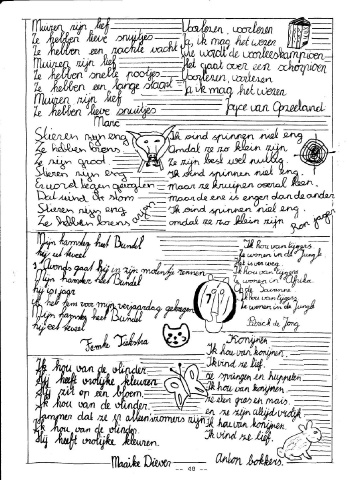 Muizen zijn lief
Ze hebben lieve snuitjes
Ze hebben een zachte vacht
Muizen zijn lief
Ze hebben snelle pootjes
Ze hebben een lange staart
Muizen zijn lief
Ze hebben lieve snuitjes
Marc
Voorlezen, voorlezen
Ja, ik mag het weten
wie wordt de voorleeskampioen
Het gaat over een
Voorlezen, voorlezen
Ja ik mag het weten
Joyce van Opzeeland
Stieren zijn eng
Ze hebben horens
Ze zijn groot
Stieren zijn eng
Dat vind ik stom
Stieren zijn eng
Ze hebben horens
Arjan
Ik vind spinnen niet eng
Omdat ze zo klein zijn
Ze zijn best wel nuttig.
Ik vind spinnen niet eng.
maar ze kruipen overal heen.
maar de ene is enger dan de ander
Ik vind spinnen niet eng.
omdat ze zo klein zijn
Ron Jager
Mijn hamster heet Bundel
hij eet kwel
's Avonds gaat hij in zijn molentje rennen
Mijn hamster heet Bundel
hij is
ik heb hem voor mijn verjaardag gekregen
Mijn hamster heet Bundel
hij eet kwel
Femke Talsma
Ik hou van tijgers
Ze wonen in de Jungle
Ik hou van tijgers
Ze wonen in Afrika
Op de Savanne
Ik hou van tijgers
Ze wonen in de Jungle
Patrick de Jong
Ik hou van de vlinder.
Hij heeft vrolijke kleuren
Hij zit op een bloem.
Ik hou van de vlinder.
Jammer dat ze er alleen zomers zijn
Ik hou van de vlinder.
Hij heeft vrolijke kleuren.
Maaike Diever
Konijnen
Ik hou van konijnen.
Ik vind ze lief.
ze springen en huppelen
Ik hou van konijnen.
ze eten gras en mais.
en ze zijn altijd vrolijk
Ik hou van konijnen.
Ik vind ze lief.
Anton Bokkers.